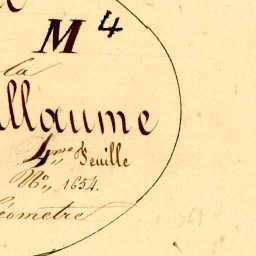 M 4
la
llaume
4me Feuille
No, 1654.
éomètre